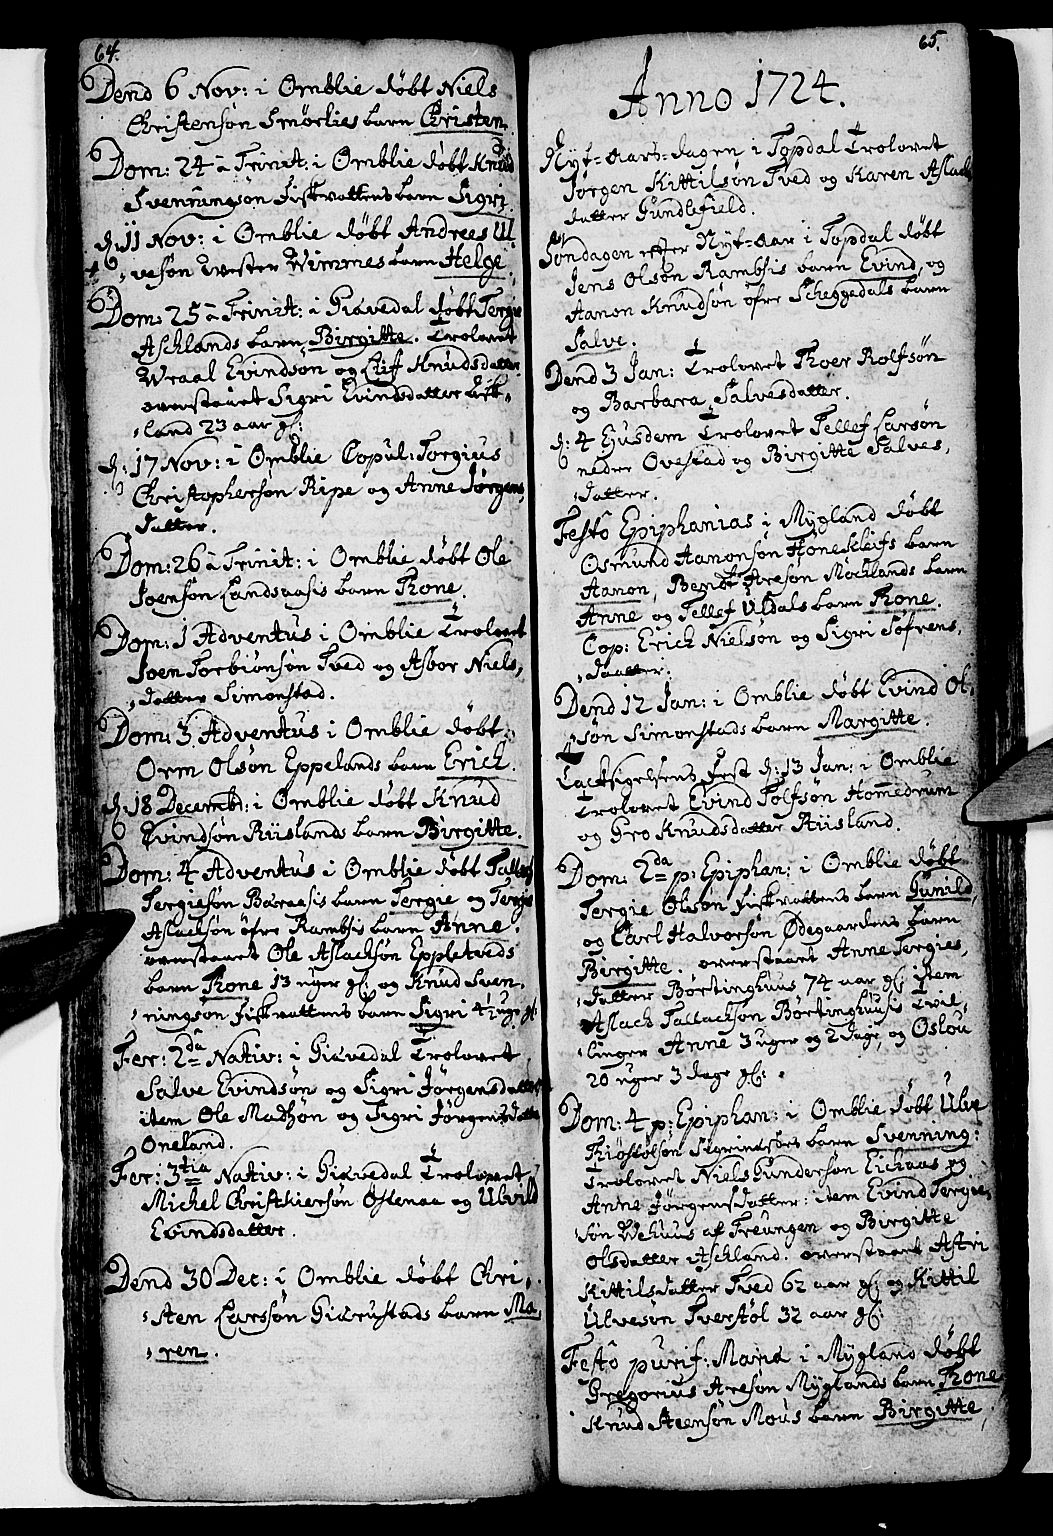 64.
Dend 6 Nov: i Omblie døbt Niels
Christensøn Smørlies barn Christen
Dom: 24 à Trinit: i Omblie døbt Knud
Svenningsøn Fiskvattens barn Sigri,
d: 11 Nov: i Omblie døbt Andrees Ul-
vesøn Wester Wimmes barn Helge.
Dom: 25 à Trinit: i Giævedal døbt Tergie
Aschlands barn, Birgitte. Trolovet
Wraal Evindsøn og Knudsdatter
overstaaet Sigri Evindsdatter
land 23 aar gl:
d: 17 Nov: i Omblie Copul: Torgius
Christophersøn Ripe og Anne Jørgens,
datter.
Dom: 26 à Trinit: i Omblie døbt Ole
Joensøn Landsaasis barn Tone.
Dom: 1 Adventus i Omblie Trolovet
Joen Torbiønsøn Tved og Asbor Niels,
datter Simonstad.
Dom: 3 Adventus i Omblie døbt
Orm Olsøn Eppelands barn Erich.
d: 18 Decembr: i Omblie døbt Knud
Evindsøn Riislands barn Birgitte.
Dom: 4 Adventus i Omblie døbt Tallach
Tergiesøn Baraasis barn Tergie og Tergie
Aslachsøn øfre Rambsis barn Anne.
overstaaet Ole Aslachsøn Eppletveds
barn Tone 13 uger gl: og Knud Sven-
ningsøn Fiskvattens barn Sigri 4½ uge gl:
Fer: 2da Nativ: i Giævedal Trolovet
Salve Evindsøn og Sigri Jørgensdatter
item Ole Madsøn og Sigri Jørgensdatter
Oneland.
Fer: 3tia Nativ: i Giævedal Trolovet
Michel Christhiersøn Ostenaa og Ulvild
Evindsdatter.
Dend 30 Dec: i Omblie døbt Chri-
sten Larsøn Giærustads barn Ma-
ren.
65.
Anno 1724.
Nyt-aars-dagen i Topdal Trolovet
Jørgen Kittilsøn Tved og Karen Aslachs
datter Gundlefield.
Søndagen efter Nyt-aar i Topdal døbt
Jens Olsøn Rambsis barn Evind, og
Aanon Knudsøn øfre Scheggedals barn
Salve.
Dend 3 Jan: Trolovet Thoer Rolfsøn
og Barbara Salvesdatter.
d: 4 Ejusdem Trolovet Tellef Larsøn
neder Ovestad og Birgitte Salves,
datter.
Festô Epiphanias i Mygland døbt
Osmund Aanonsøn Hønescleifs barn
Aanon, Bendt Aresøn Mochlands barn
Anne og Tellef Uldals barn Tone.
Cop: Erich Nielsøn og Sigri Søfrens,
daatter.
Dend 12 Jan: i Omblie døbt Evind Ol-
søn Simonstads barn Margitte.
Tacksigelsens Fest d: 13 Jan: i Omblie
Trolovet Evind Tolfsøn Hommedrum
og Gro Knudsdatter Riisland.
Dom: 2da p: Epiphan: i Omblie døbt
Tergie Olsøn Fiskvattens barn Gunild,
og Carl Halvorsøn Ødegaardens barn
Birgitte. overstaaet Anne Tergies,
datter Børtinghuus 74 aar gl: item
Aslach Tallachsøn Børtinghuusi Tvil-
linger Anne 3 uger og 2 Dage, og Oslou
20 uger 3 dage gl:
Dom: 4 p: Epiphan: i Omblie døbt Ulve
Kiøstolsøn barn Svenning:
Trolovet Niels Gundersøn Eichaas og
Anne Jørgensdatter: item Evind Tergie-
søn Wehuus af Treungen og Birgitte
Olsdatter Aschland. overstaaet Astri
Kittilsdatter Tved 62 aar gl: og Kittil
Ulvesøn Tverstøl 32 aar gl:
Festô purif: Mariæ i Mygland døbt
Gregorius Aresøn Myglands barn Tone
Knud Steensøn Mous barn Birgitte,